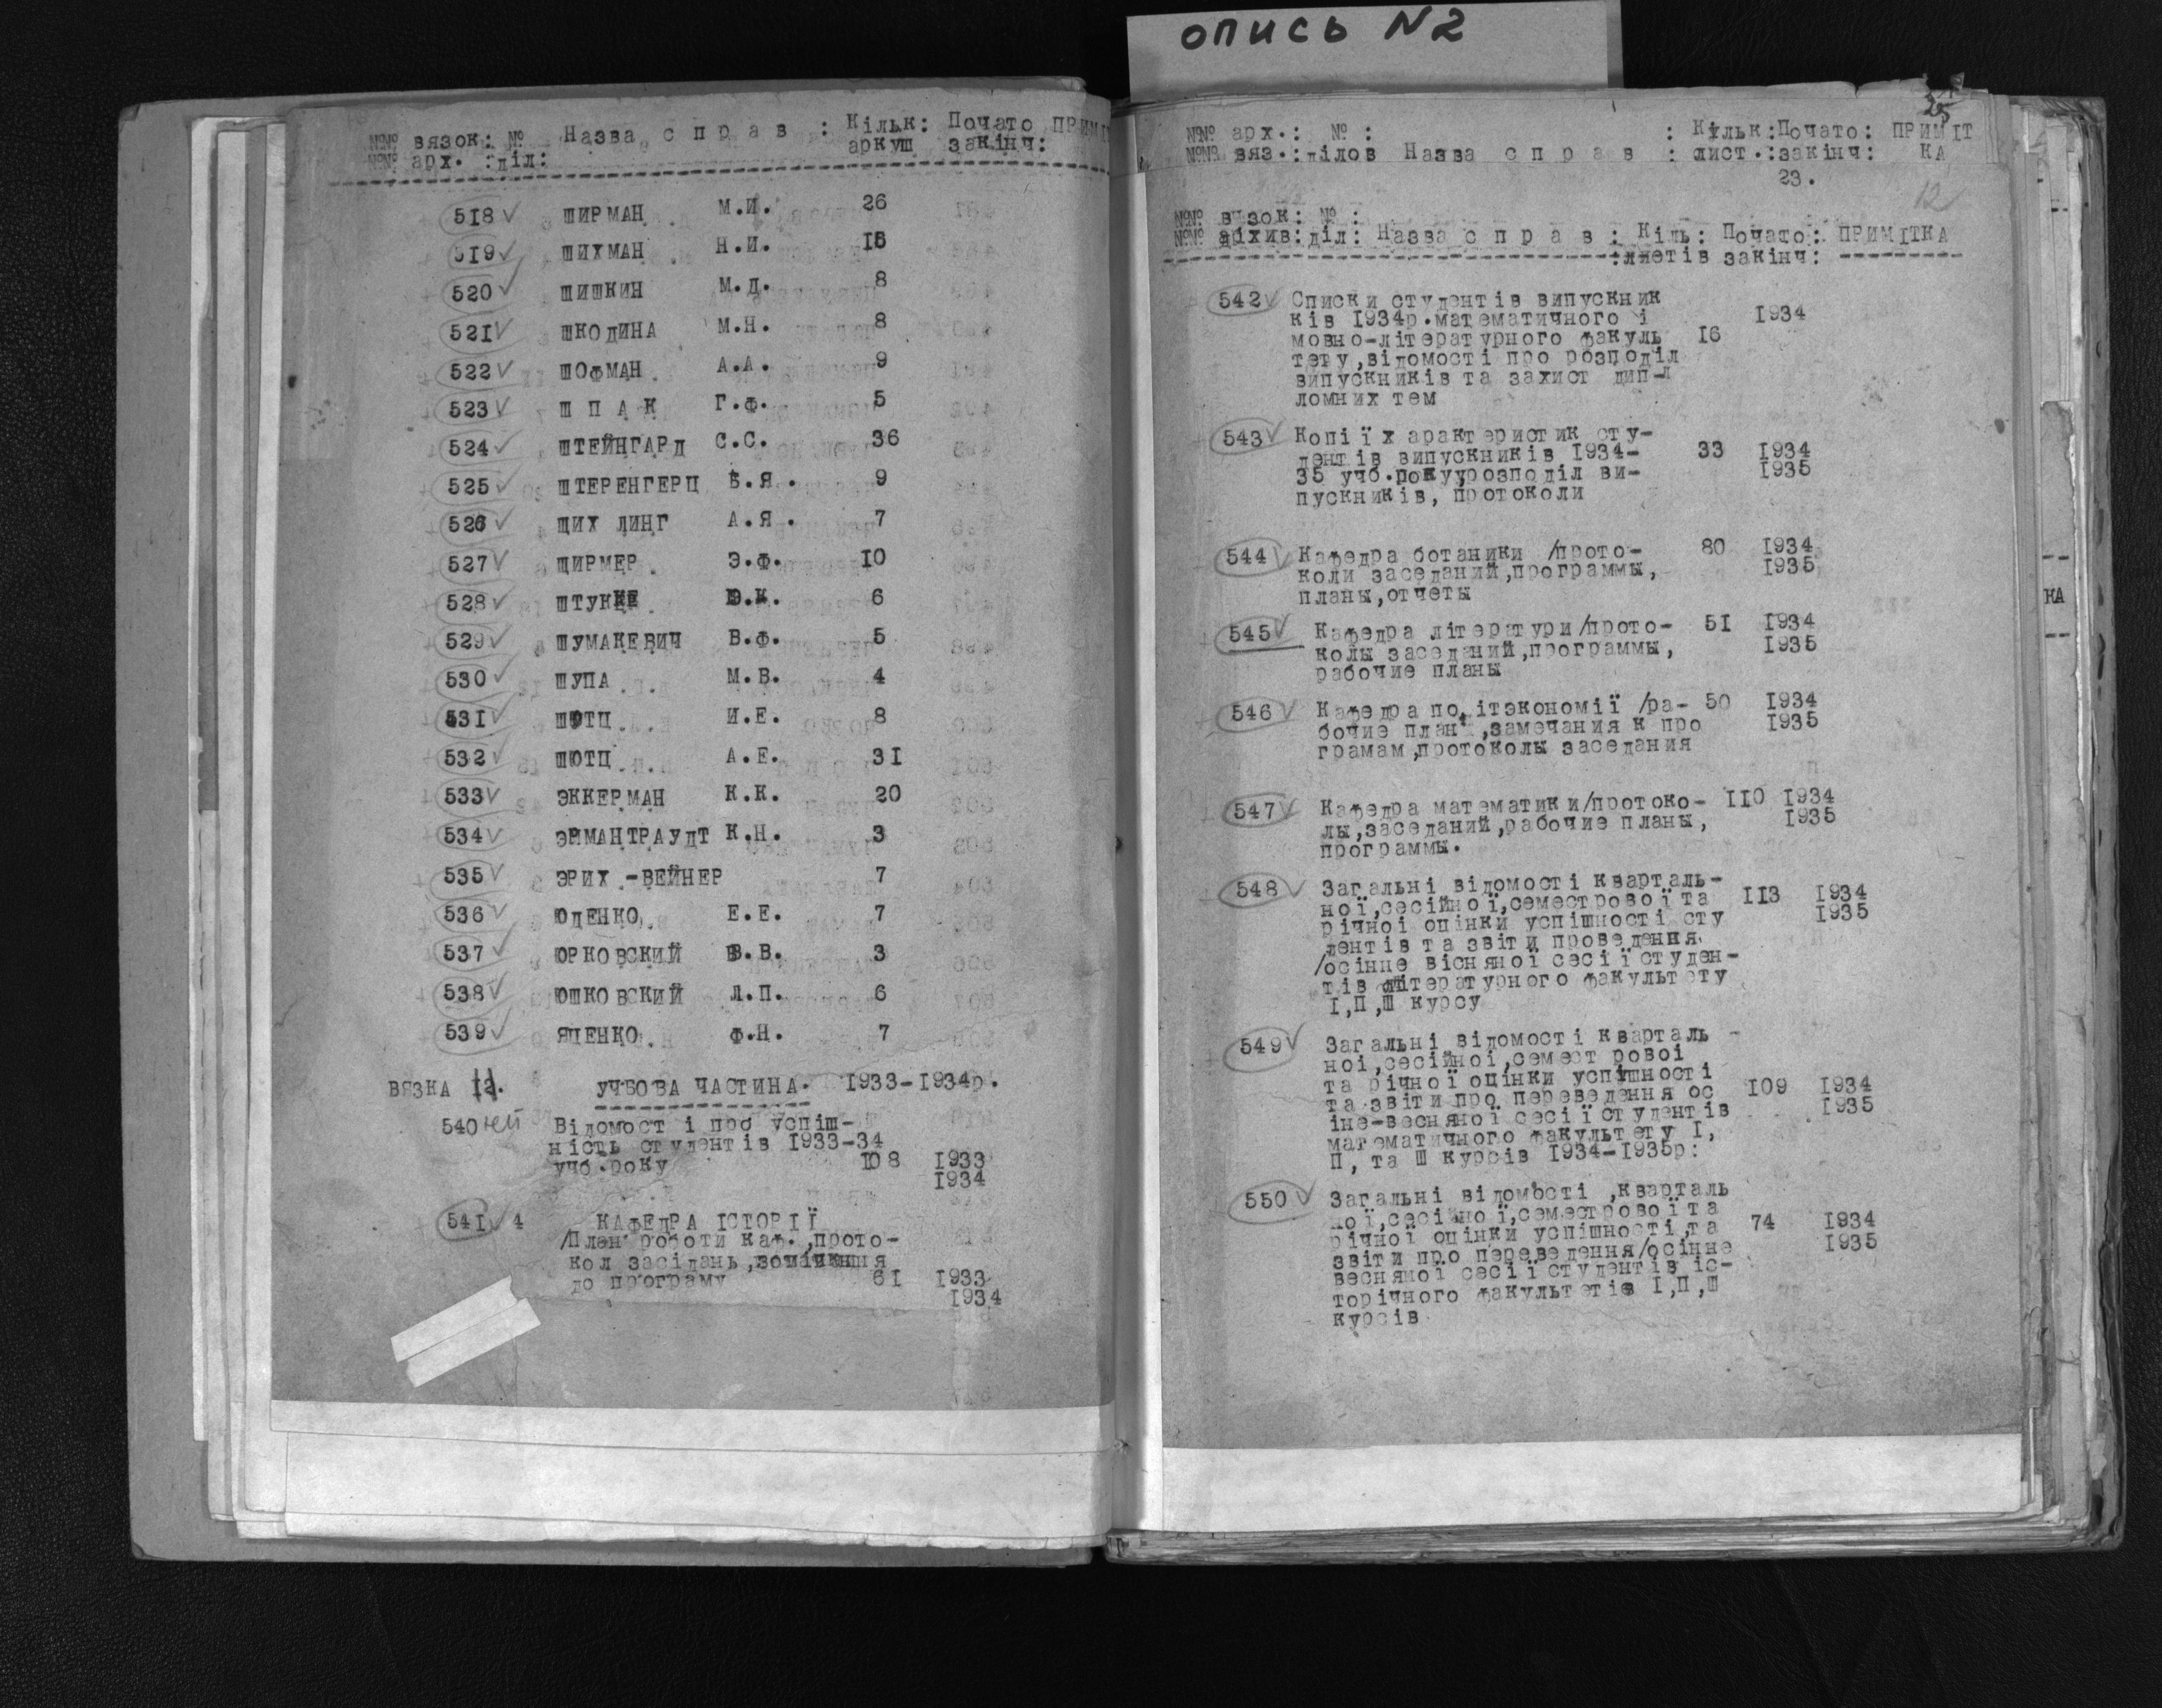 опись N2
№№ вязок: № Назва с п р а в : Кільк: Почато ПРИМІ
№№ арх. :діл: аркуш закінч:
518 ШИРМАН М.И. 26
519 ШИХМАН Н.И. 15
520 ШИШКИН М.Д. 8
521 ШКОДИНА М.Н. 8
522 ШОФМАН А.А. 9
523 Ш П А К Г.Ф. 5
524 ШТЕЙНГАРД С.С. 36
525 ШТЕРЕНГЕРЦ Б.Я. 9
526 ШИХ ЛИНГ А.Я. 7
527 ШИРМЕР Э.Ф. 10
528 ШТУККЕ 6
529 ШУМАКЕВИЧ В.Ф. 5
530 ШУПА М.В. 4
531 ШЮТЦ И.Е. 8
532 ШЮТЦ А.Е. 31
533 ЭККЕРМАН К.К. 20
534 ЭРМАНТРАУДТ К.Н. 3
535 ЭРИХ -ВЕЙНЕР 7
536 ЮДЕНКО Е.Е. 7
537 ЮРКОВСКИЙ В.В. 3
538 ЮШКОВСКИЙ Л.П. 6
539 ЯЦЕНКО Ф.Н. 7
ВЯЗКА 11. УЧБОВА ЧАСТИНА. 1933-1934р.
540 Відомост і про успіш-
ність студентів 1933-34
учб.року 108 1933
1934
541 4 КАФЕДРА ІСТОРІЇ
/План роботи каф.,прото-
кол засідань,
до програму 61 1933
1934
25
№№ арх.: № : : Кільк:Почато: ПРИМІТ
№№ вяз.:ділов Назва с п р а в : лист.:закінч: КА
23.
12
№№ вязок: № :
№№ архив:діл: Назва с п р а в : Кіль: Почато: ПРИМІТКА
:листів закінч:
542 Списки студентів випускник
ків 1934р.математичного і 1934
мовно-літературного факуль 16
тету,відомості про розподіл
випускників та захист дип-л
ломних тем
543 Копії характеристик сту-
дентів випускників 1934- 33 1934
35 учб.року,розподіл ви- 1935
пускників, протоколи
544 Кафедра ботаники /прото- 80 1934
коли заседаний,программы, 1935
планы,отчеты
545 Кафедра літератури/прото- 51 1934
колы заседаний,программы, 1935
рабочие планы
546 Кафедра політэкономії /ра- 50 1934
бочие план ,замечания к про 1935
грамам,протоколы заседания
547 Кафедра математики/протоко- 110 1934
лы,заседаний,рабочие планы, 1935
программы.
548 Загальні відомості кварталь-
ної,сесійної,семестрової та 113 1934
річної оцінки успішності сту 1935
дентів та звіти проведення
/осінне вісняної сесії студен-
тів літературного факультету
І,П,Ш курсу
549 Загальні відомості кварталь -
ної,сесійної,семест рової
та річної оцінки успішності
та звіти про переведення ос 109 1934
іне-весняної сесії студентів 1935
математичного факультету І,
П, та Ш курсів 1934-1935р:
550 Загальні відомості ,кварталь
ної,сесійної,семестрової та
річної оцінки успішності,та 74 1934
звіти про переведення/осінне 1935
весняної сесії студентів іс-
торічного факультетів І,П,Ш
курсів
КА